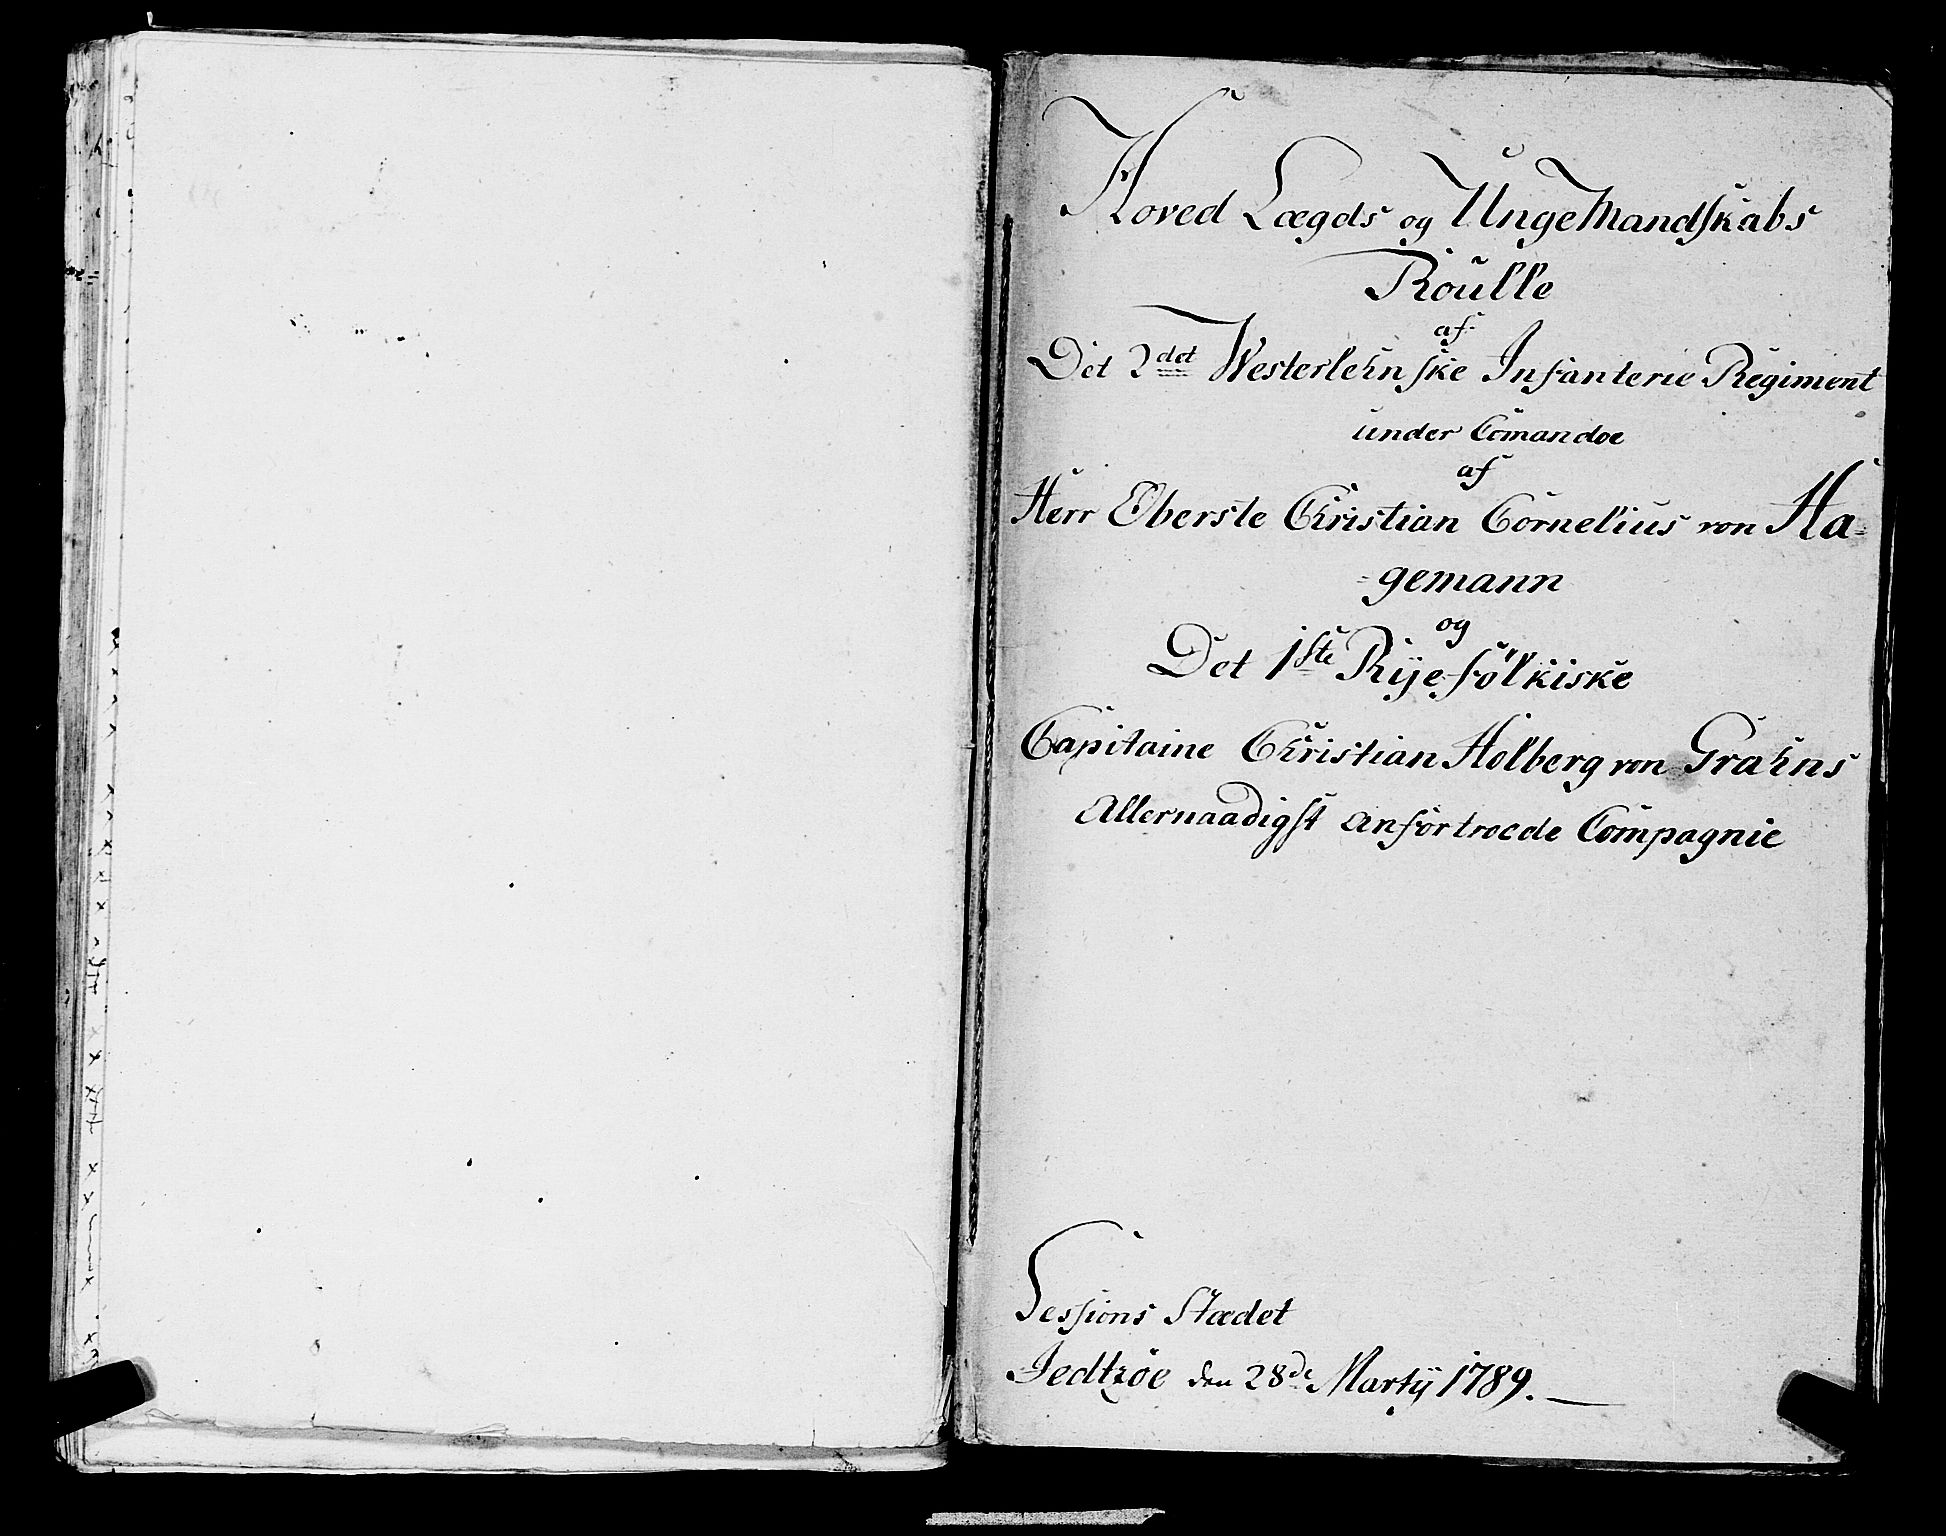 Hoved Lægds og Unge Mandskabs
Roulle
af
Det 2det Westerlehnske Infanterie Regiment
under Comandoe
af
Herr Oberste Christian Cornelius von Ha-
-gemann
og
Det 1ste Ryefølkiske
Capitaine Christian Holberg von Grahns
Allernaadigst anfortroede Compagnie
Sessions Stædet
Jedtzøe den 28de Martij 1789.